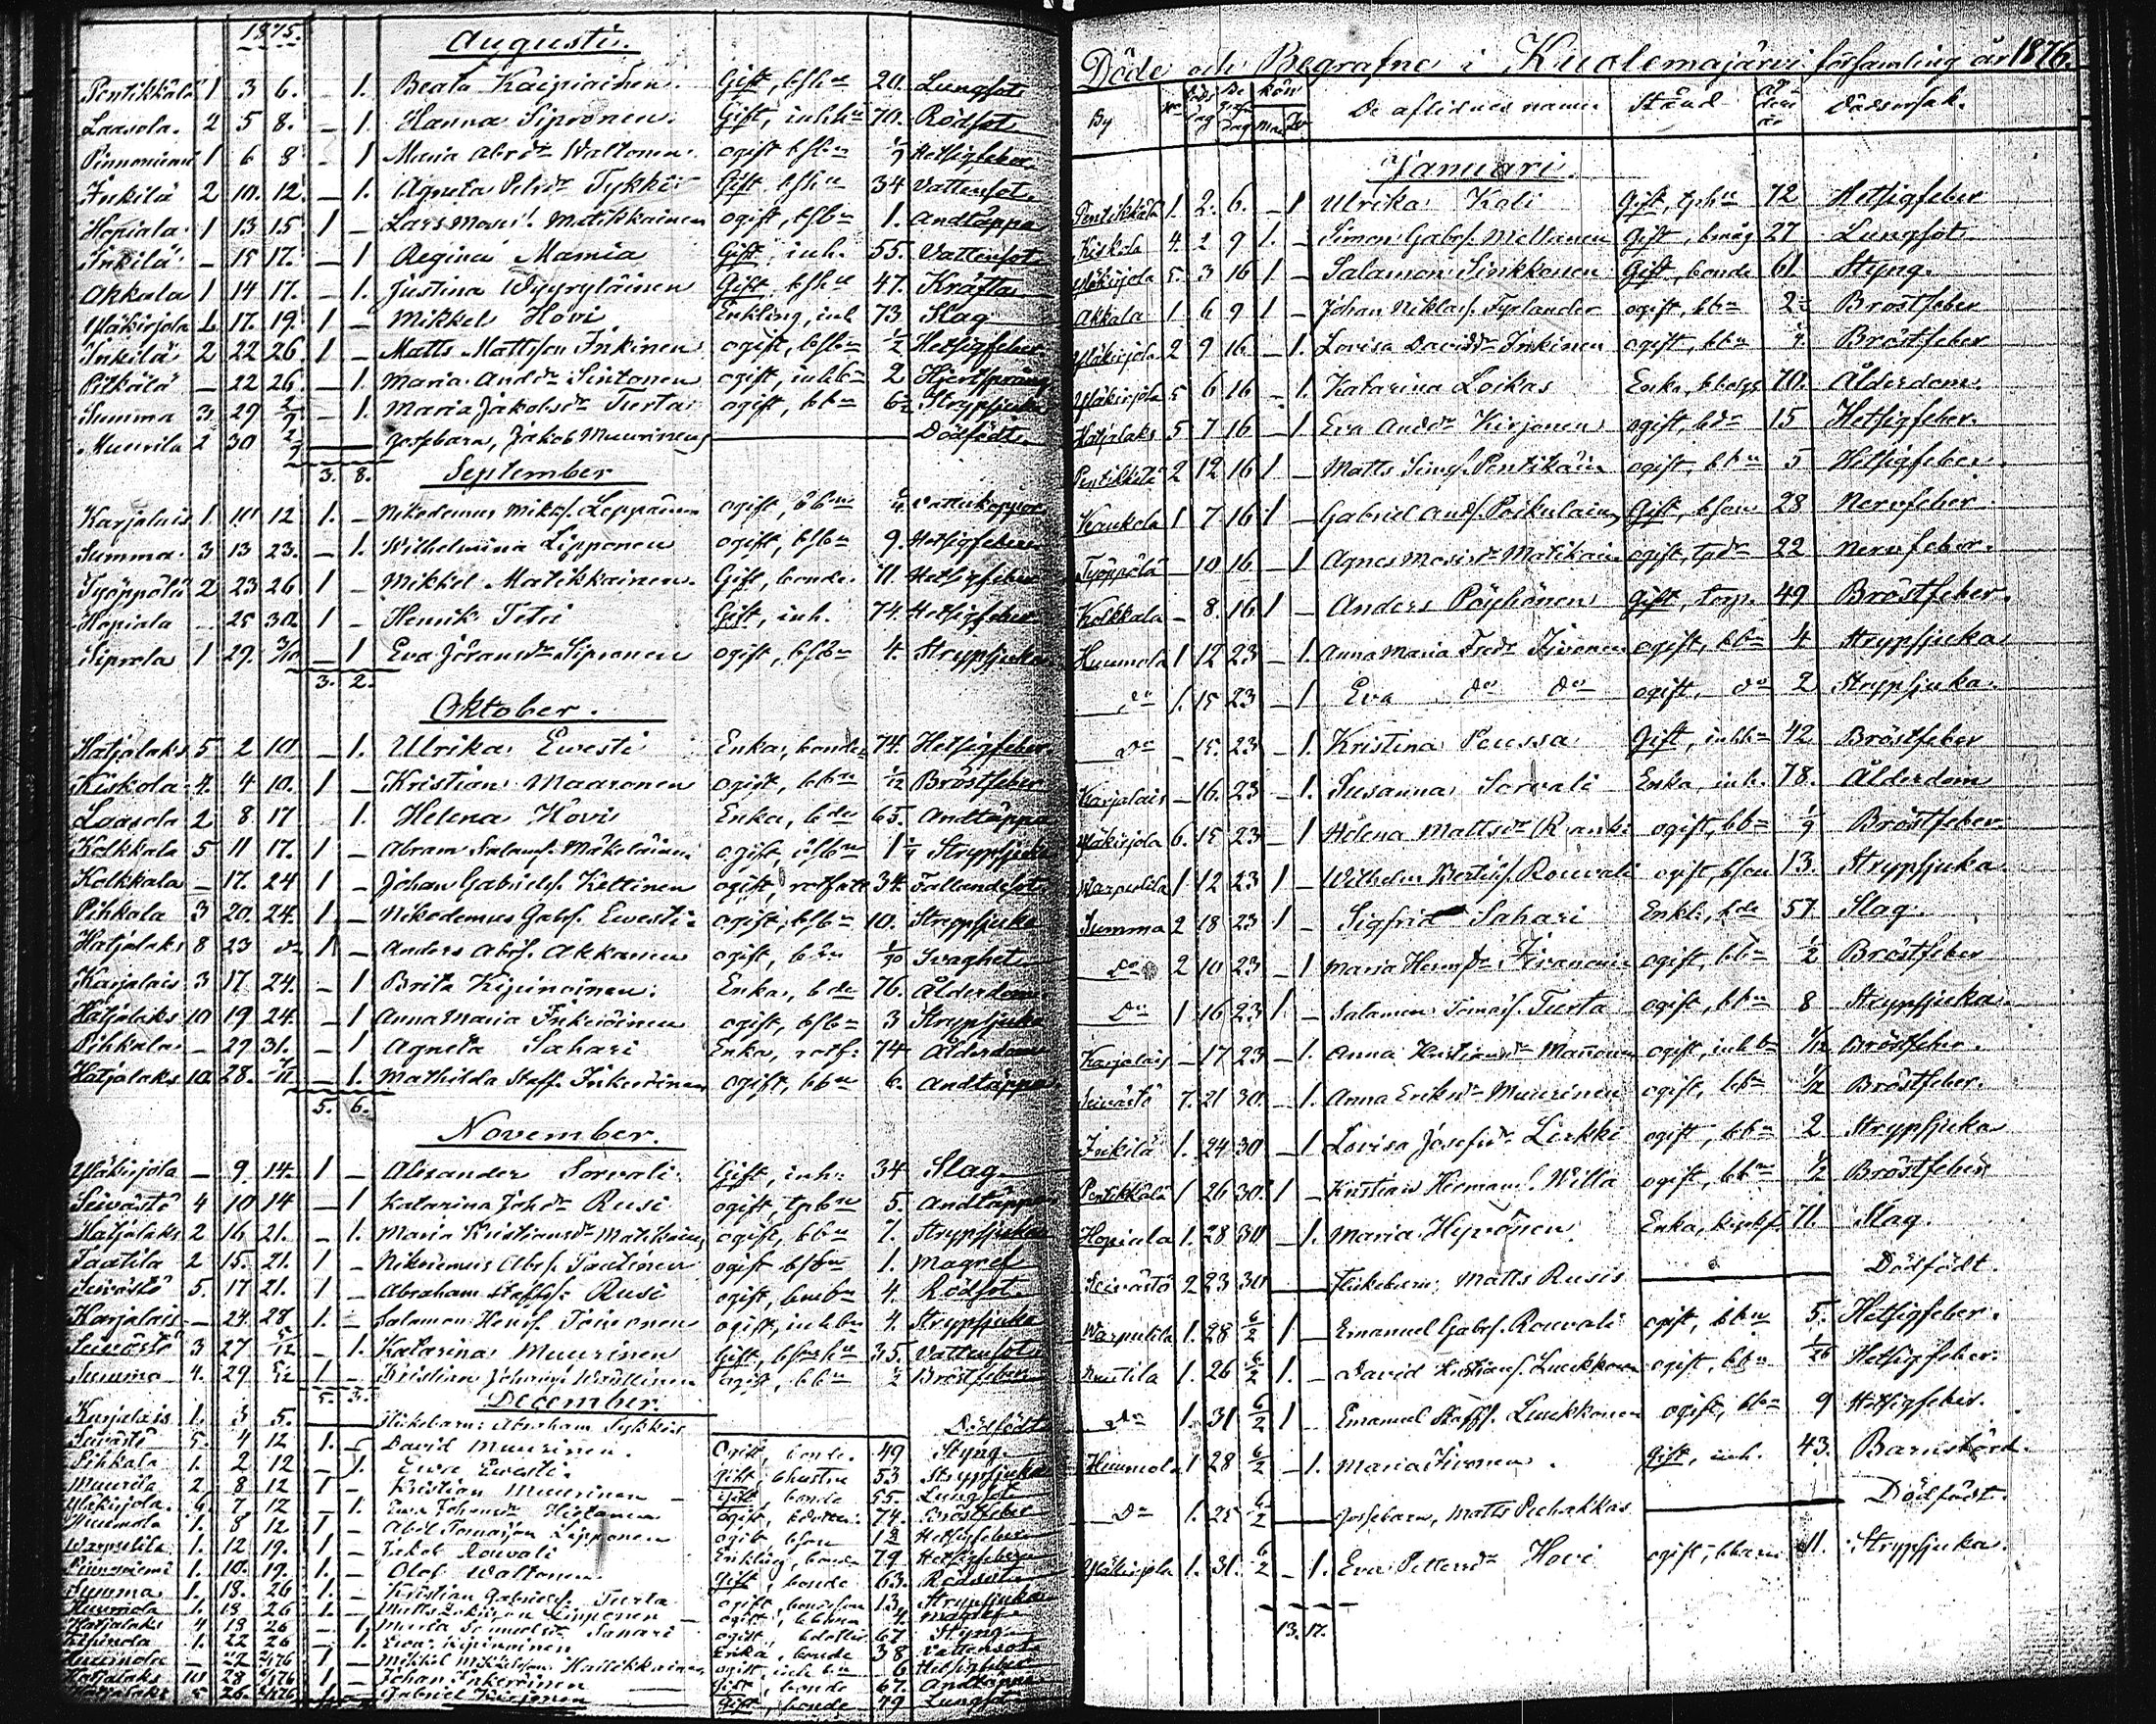 1875.
Augusti.
Pentikkälä 1 3 6. – 1. Beata Kaipiainen. Gift, bshu 20. Lungsot
Laasola. 2 5 8. – 1. Hanna Sipronen. Gift, inhhu 70. Rödsot
1 6 8 – 1 Maria Abrdr Waltonen ogift Hetsigfeber
Inkilä 2 10. 12. – 1. Agneta Petrdr Tykki Gift, bshu 34 Vattensot.
Hopiala 1 13 15 1 – Lars Mosis. Matikkainen ogift, bsbn 1. Andtäppa
Inkilä – 15 17. – 1 Regina Mamia Gift inh. 55. Vattensot
Akkala 1 14 17. – 1. Justina Wyyryläinen Gift bshu 47. Kräfta
Yläkirjola 1 17. 19. 1 – Mikkel Hovi Enkling, inh 73 Slag
Inkilä 2 22 26. 1 – Matts Mattsson Inkinen ogift, bsbn ½ Hetsigfeber
Pitkälä – 22 26. – 1. Maria Anddr Sintonen ogift, inhbn 2 Hjertsprång
Summa 3. 29 2/9 – 1. Maria Jakobsdr Turta ogift, bbn 6/12 Strypsjuka
Muurila 2 30 2/9 Gossebarn, Jakob Muurinens Dödfödt.
3. 8.
September
Karjalais 1. 10 12 1. – Nikodemus Mikss. Leppänen ogift, bbn Vattukoppor
Summa 3 13 23. – 1. Wilhelmina Lipponen ogift, bsbn 9. Hetsigfeber
Työppölä 2 23 26 1 – Mikkel Matikkainen. Gift, bonde 71. Hetsigfeber
Hopiala – 25 30. 1 – Henrik Teti Gift, inh. 74. Hetsigfeber
Siprola 1 29. 3/10 – 1 Eva Göransdr Sipronen ogift, bsbn 4. Strypsjuka
3. 2.
Oktober.
Hatjalaks 5. 2 10 – 1. Ulrika Ewesti Enka, bonde 74. Hetsigfeber.
Kiskola 4. 4 10. 1 – Kristian Maaronen ogift, bbn 1/12 Bröstfeber
Laasola 2 8. 17 1. Helena Hovi Enka, bde 65. Andtäppa
Kolkkala 5 11 17. 1 – Abram Salams. Mäkeläinen ogift, bsbn Strypsjuka
Kolkkala – 17. 24 1 – Johan Gabriels. Kettinen ogift, rotfatt 34. Fallandesot
Pihkala 3 20. 24. 1 – Nikodemus Gabrs. Ewesti ogift, bsbn 10. Strypsjuka
Hatjalaks 8 23 do 1 – Anders Abrs. Akkanen ogift, bdn 1/10 Svaghet
Karjalais 3 17 24. – 1 Brita Kipinoinen. Enka, bde 76. Ålderdom
Hatjalaks 10 19 24. – 1 Anna Maria Inkeröinen ogift, bsbn 3 Strypsjuka
Pihkala – 29 31. – 1 Agneta Sahari Enka, rotf. 74 Ålderdom
Hatjalaks 10. 28. – 1. Mathilda Staff. Inkeröinen ogift, bbn 6. Andtäppa
5. 6.
November.
Yläkirjola – 9. 14. 1 – Alexander Sorvali Gift, inh. 34 Slag
Seivästö 4 10 14 – 1 Katarina Johdr Rusi ogift, tpbn 5. Andtäppa
Hatjalaks 2 16 21. – 1. Maria Kristiansdr Matikainen ogift, bbn 7. Strypsjuka
Taatila 2 15. 21. 1 – Nikodemus Abrs. Taatinen ogift bsbn 1. Magref
Seivästö 5. 17 21. 1 – Abraham Staffss. Rusi ogift, bmbn 4. Rödsot
Karjalais – 24. 28 1. – Salamon Henrs. Toivonen ogift, inhbn 4. Strypsjuka
Seivästö 3 27 5/12 – 1. Katarina Muurinen Gift, 35. Vattensot
Summa 4. 29 5/12 1 – Kristian Johans. ogift, bbn ½ Bröstfeber
5. 3.
December.
Karjalais 1. 3 5. Flickebarn: Abraham Tykkis Dödfödt
Seivästö 5. 4 12 1. – David Muurinen. Gift, bonde. 49 Styng
Pihkala 1. 2 12 – 1. Ewa Ewesti. gift, bhustru 53 Strypsjuka
Muurila 2 8 12 1 – Kristian Muurinen gift, bonde 55. Lungsot
Yläkirjola. 6. 7 12 – 1. Ewa Johansdr Hietanen ogift, 74. Bröstfeber
Huumola 1. 8 12 1 – Abel Tomasson Lipponen ogift, bson 12 Hetsigfeber
Warpulila 1. 12 19. 1 – Jakob Rouvali Enkling, bonde 79 Hetsigfeber
Pinnoniemi 1. 10. 19. 1. – Olof Waltonen. Gift, bonde 63. Rödsot
Summa 1. 18. 26 1. – Kristian Gabrielss. Turta ogift, bondeson 13. Strypsjuka
Huumola 1. 18 26 1. – Matts Lipponen ogift, bbarn 4. Magref
Hatjalaks 4 19 26 – 1 Maria Samuelsdr Sahari ogift, 67 Styng
Kipinola 1. 22 26 – 1. Ewa Kipinoinen Enka, bonde 38 Vattensot
Huumola – 27 2/1 76 1 – Mikkel Mikkelsson Hatikkainen ogift inhbn 6 Hetsigfeber
Hatjalaks 10 28 2/1 76 1 – Johan Inkeröinen Gift, bonde 67. Andtäppa
Hatjalaks 5 26. 2/1 76 Gabriel Gift, bonde 49 Lungsot
Döde och Begrafne i Kuolemajärvi församling år 1876.
By No Döds dag Begr. dag Kön Man Qv De aflidnes namn Stånd Ålder år Dödsorsak.
Januari.
Pentikkälä 1. 2. 6. – 1 Ulrika Koli Gift, tphu 72 Hetsigfeber
Kiskola 4. 2 9 1. – Simon Gabrs. Mellanen Gift, bmåg 27 Lungsot.
Yläkirjola 5. 3 16 1 – Salamon Sinkkonen Gift, bonde 61. Styng.
Akkala 1 6 9 1 – Johan Niklass. Fyrlander ogift, bbn 2½ Bröstfeber
Yläkirjola 2 9 16 – 1. Lovisa Daviddr Inkinen ogift, bbn Bröstfeber
Yläkirjola 5 6 16 – 1. Katarina Loikas Enka, 70. Ålderdom.
Hatjalaks 5 7 16 – 1 Eva Anddr Kirjonen ogift, bdr 15 Hetsigfeber.
Pentikkälä 2 12 16 1 – Matts Simss. Pentikäin ogift, bbn 5 Hetsigfeber.
Kaukola 1 7 16 1 – Gabriel Ands. Poikulain Gift, bson 28 Nervfeber.
Työppölä – 10 16 – 1 Agnes Mosisdr Matikain ogift, tpdr 22 Nervfeber.
Kolkkala – 8. 16 1 – Anders Pöyhönen Gift, torp. 49 Bröstfeber.
Huumola 1 12 23 – 1. Anna Maria Fredr Iivonen ogift, bbn 4 Strypsjuka
Do 1. 15 23 – 1 Eva do do ogift, do 2 Strypsjuka.
Do – 15. 23 – 1. Kristina Peussa Gift, inhhu 42 Bröstfeber
Karjalais – 16. 23 – 1. Susanna Sorvali Enka, inh. 78. Ålderdom
Yläkirjola 6. 15 23 – 1 Helena Mattsdr Ranki ogift, bbn Bröstfeber.
Warpulila 1 12 23 1 – Wilhelm Bertils. Rouvali ogift, bson 13. Strypsjuka
Summa 2 18 23 1 – Sigfrid Sahari Enkl., bde 57 Slag.
Do 2 10 23 – 1 Maria Henrsdr ogift, bbn ½ Bröstfeber
Do 1 16 23 1. – Salamon Tomass. Turta ogift, bbn 8 Strypsjuka.
Karjalais – 17 23 – 1. Anna Kristiansdr Mannonen ogift, inhbn 1/12 Bröstfeber.
Seivästö 7. 21 30 – 1. Anna Eriksdr Muurinen ogift, bbn 1/12 Bröstfeber.
Inkilä 1. 24 30 – 1 Lovisa Josefsdr Lirkki ogift, bbn 2 Strypsjuka
Pentikkälä 1 26 30. 1 – Kristian Hermans. Willa ogift, bbn ½ Bröstfeber
Hopiala 1. 28 30 – 1. Maria Hyvönen Enka, 71. Slag.
Seivästö 2 23 30 Flickebarn, Matts Rusis Dödfödt.
Warpulila 1. 28 6/2 1 – Emanuel Gabrs. Rouvali ogift, bbn 5. Hetsigfeber.
1. 26 6/2 1. – David Kristians. Luukkonen ogift, bbn 1/26 Hetsigfeber.
Do 1. 31 6/2 1 Emanuel Staffs. Luukkonen ogift, bbn 9 Hetsigfeber.
Huumola 1 28 6/2 – 1. Maria Iivonen. Gift, inh. 43. Barnsbörd.
Do 1. 25 6/2 Gossebarn, Matts Puhakkas Dödfödt.
Yläkirjola 1. 31. 6/2 – 1. Eva Pettersdr Hovi ogift, bbarn 11. Strypsjuka.
13. 17.